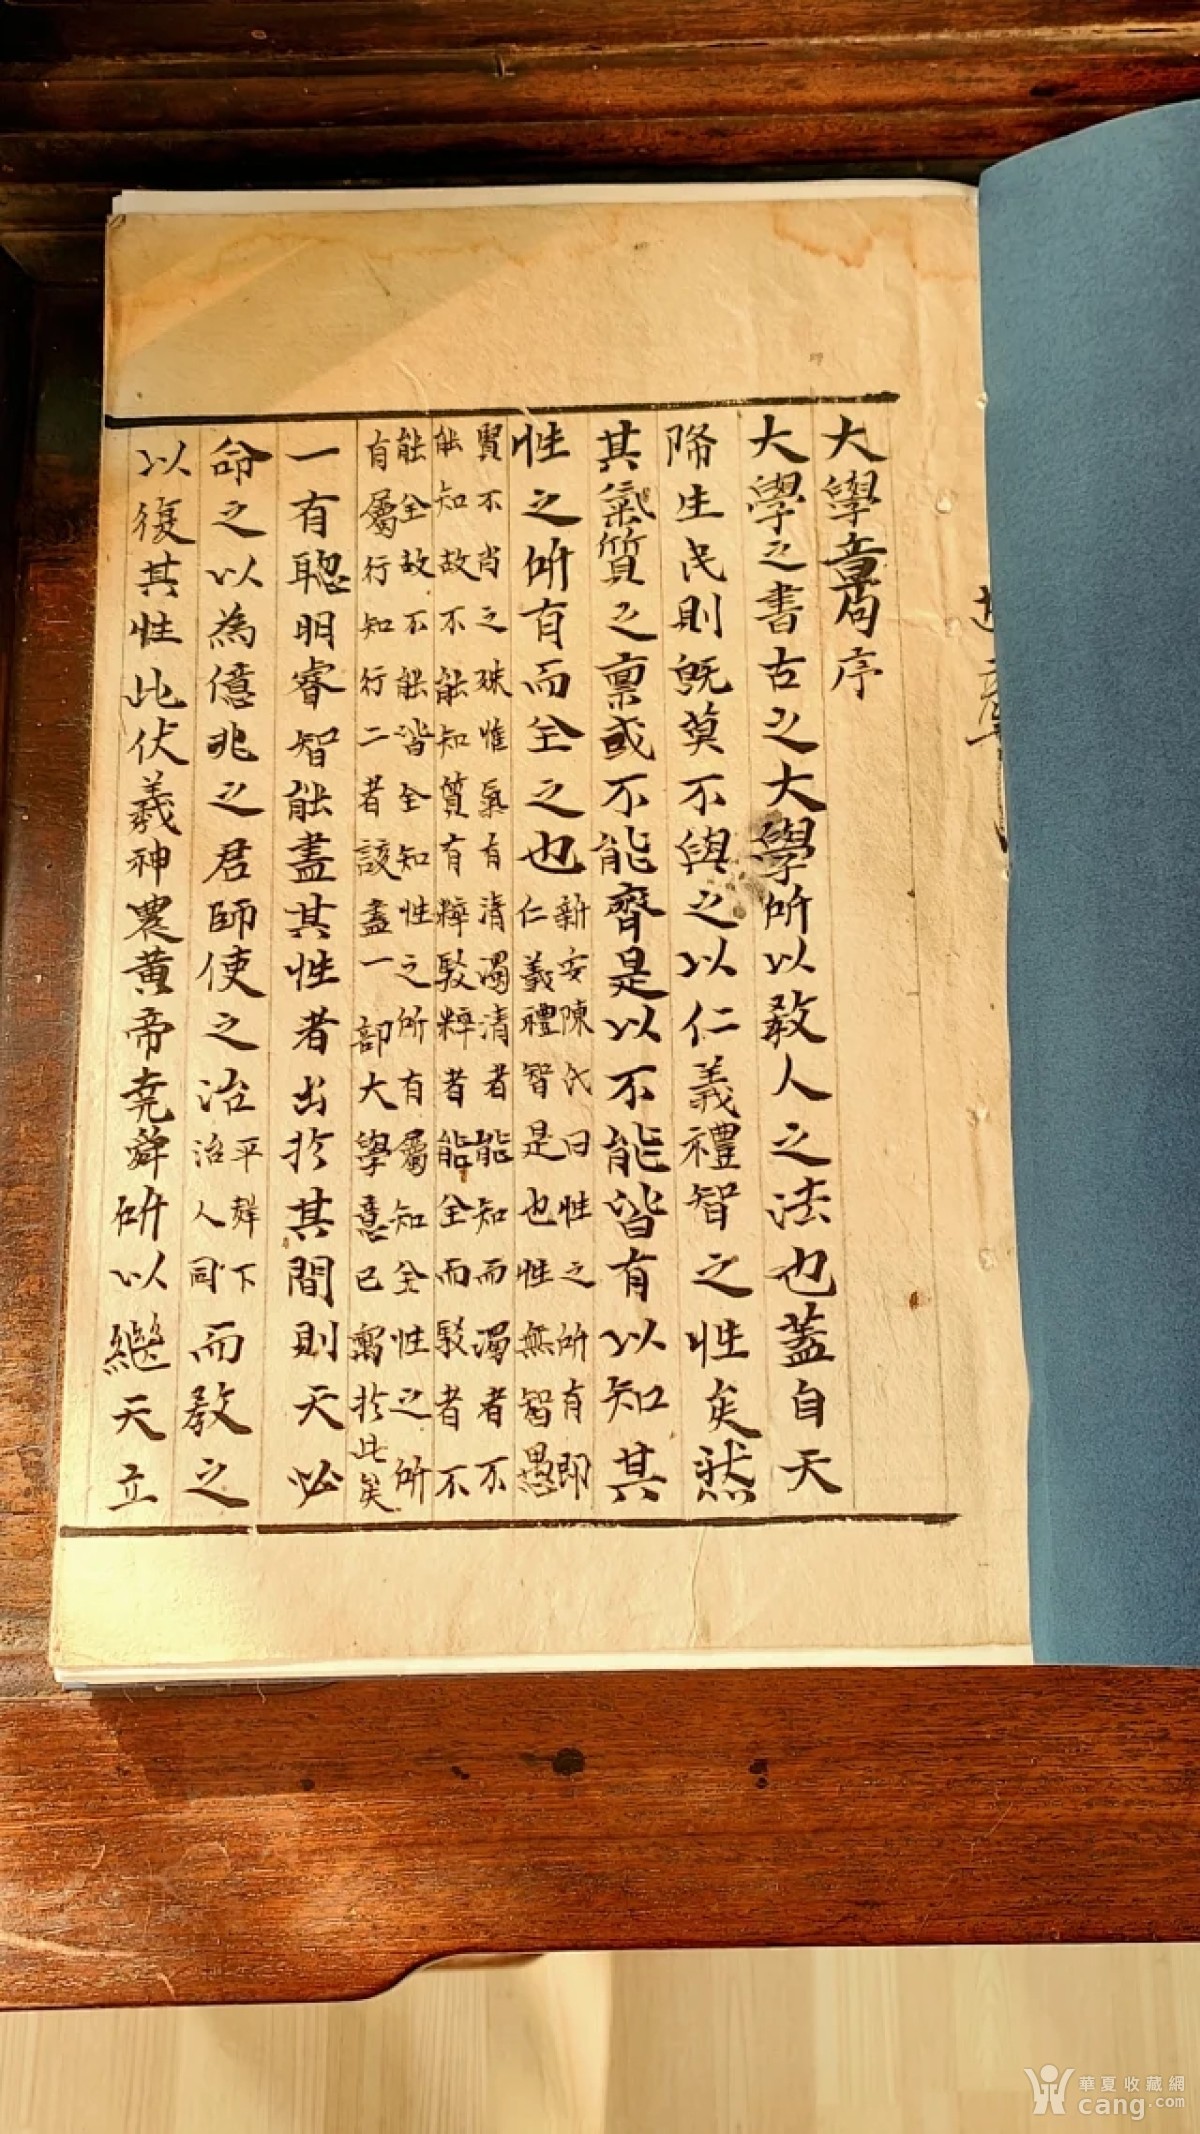 大學章句序
大學之書古之大學所以教人之法也蓋自天
降生民則旣莫不與之以仁義禮智之性矣然
其氣質之稟或不能齊是以不能皆有以知其
性之所有而全之也
新安陳氏曰性之所有即
仁義禮智是也性無智愚
賢不肖之殊惟氣有清濁清者能知而濁者不
能知故不能知質有粹駁粹者能全而駁者不
能全故不能皆全知性之所有屬知全性之所
有屬行知行二者該盡一部大學意已寓於此矣
一有聰明睿智能盡其性者出於其間則天必
命之以為億兆之君師使之治
平聲下
治人同
而教之
以復其性此伏羲神農黄帝堯舜所以繼天立
華夏收藏網
cang.com